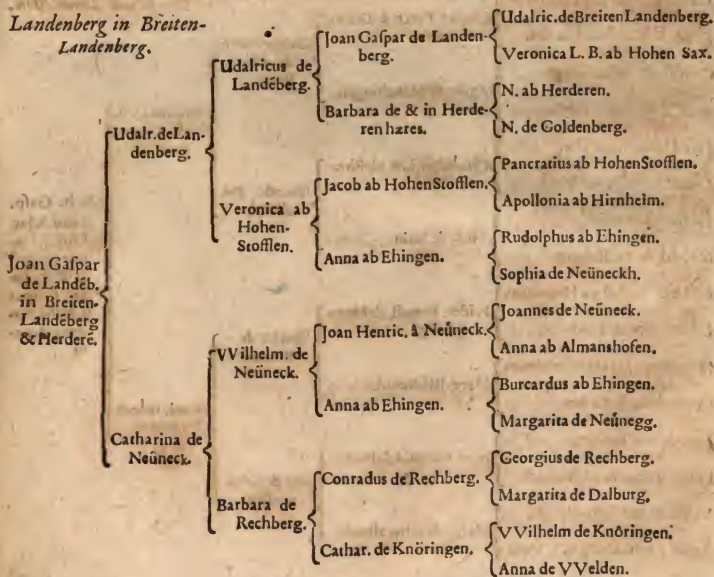 Landenberg in Breiten-
Landenberg.
Joan Gaſpar
de Landēb.
in Breiten-
Landēberg
& Herderē.
Udalr. de Lan-
denberg.
Catharina de
Neüneck.
Udalricus de
Landēberg.
Veronica ab
Hohen-
Stofflen.
VVilhelm. de
Neüneck.
Barbara de
Rechberg.
Joan Gaſpar de Landen-
berg.
Barbara de & in Herde-
ren hæres.
Jacob ab Hohen Stofflen.
Anna ab Ehingen.
Joan Henric. à Neüneck.
Anna ab Ehingen.
Conradus de Rechberg.
Cathar. de Knöringen.
Udalric. de Breiten Landenberg.
Veronica L. B. ab Hohen Sax.
N. ab Herderen.
N. de Goldenberg.
Pancratius ab Hohen Stofflen.
Apollonia ab Hirnheim.
Rudolphus ab Ehingen.
Sophia de Neüneckh.
Joannes de Neüneck.
Anna ab Almanshofen.
Burcardus ab Ehingen.
Margarita de Neünegg.
Georgius de Rechberg.
Margarita de Dalburg.
VVilhelm de Knöringen.
Anna de VVelden.